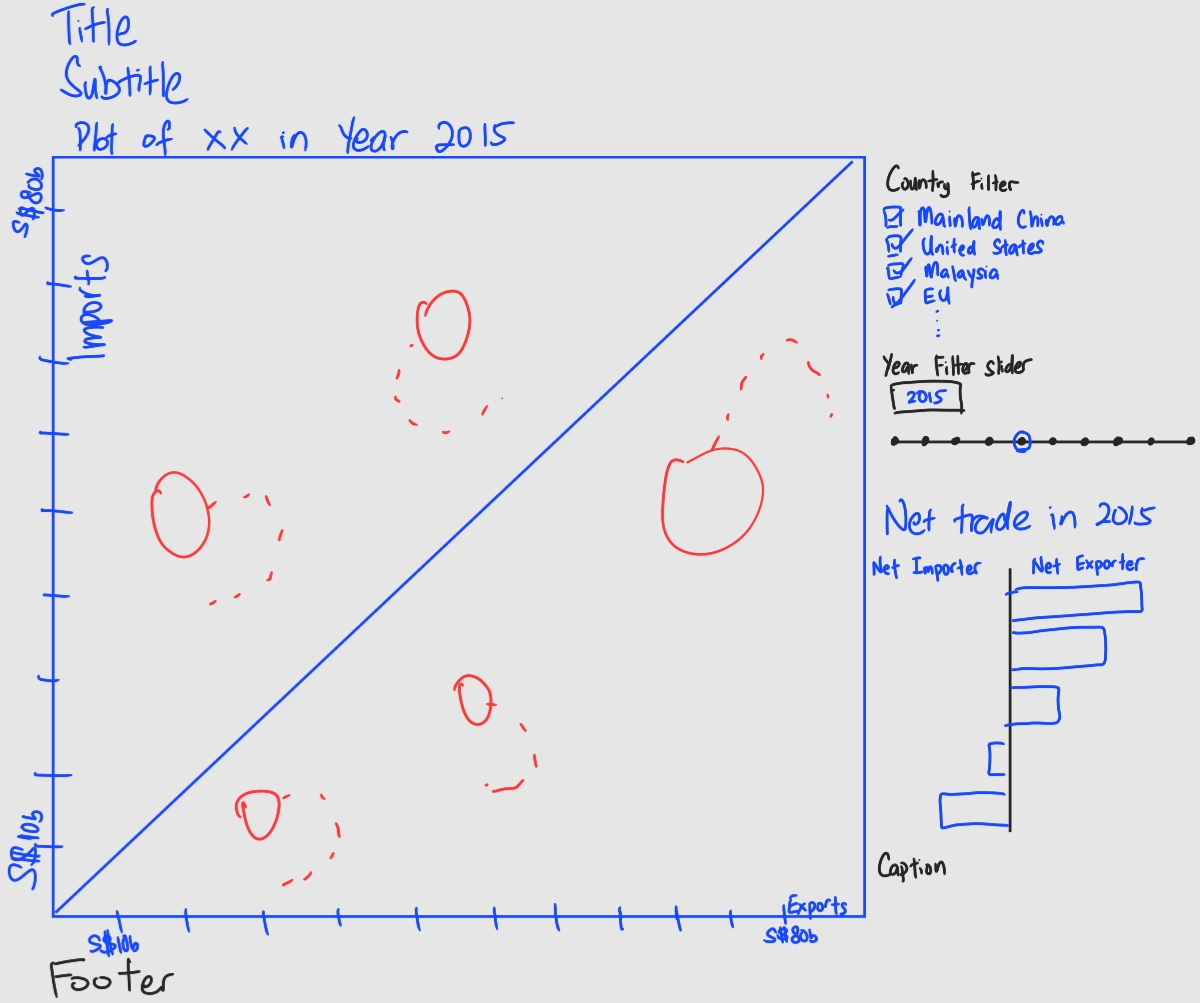 Title
Subtitle
Plot of xx in Year 2015
S$80b
Imports
S$10b
Exports
S$10b
S$80b
Footer
Country Filter
Mainland China
United States
Malaysia
EU
Year Filter slider
2015
Net trade in 2015
Net Importer
Net Exporter
Caption